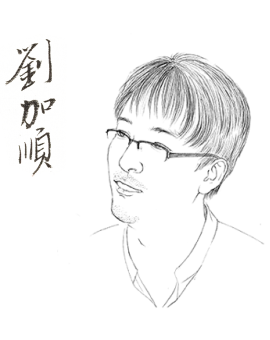 劉加順